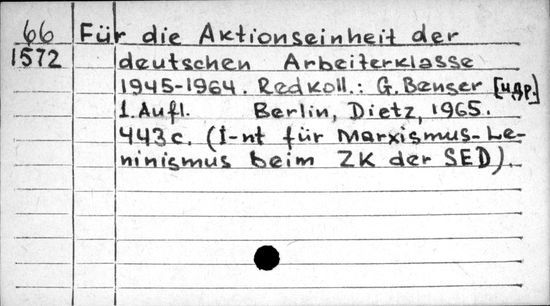 66
1572
Für die Aktionseinheit der
deutschen Arbeiterklasse
1945-1964. Redkoll.: G. Benser [и др.]
1. Aufl. Berlin, Dietz, 1965.
443 с. (I-nt für Marxismus-Le-
ninismus beim ZK der SED).